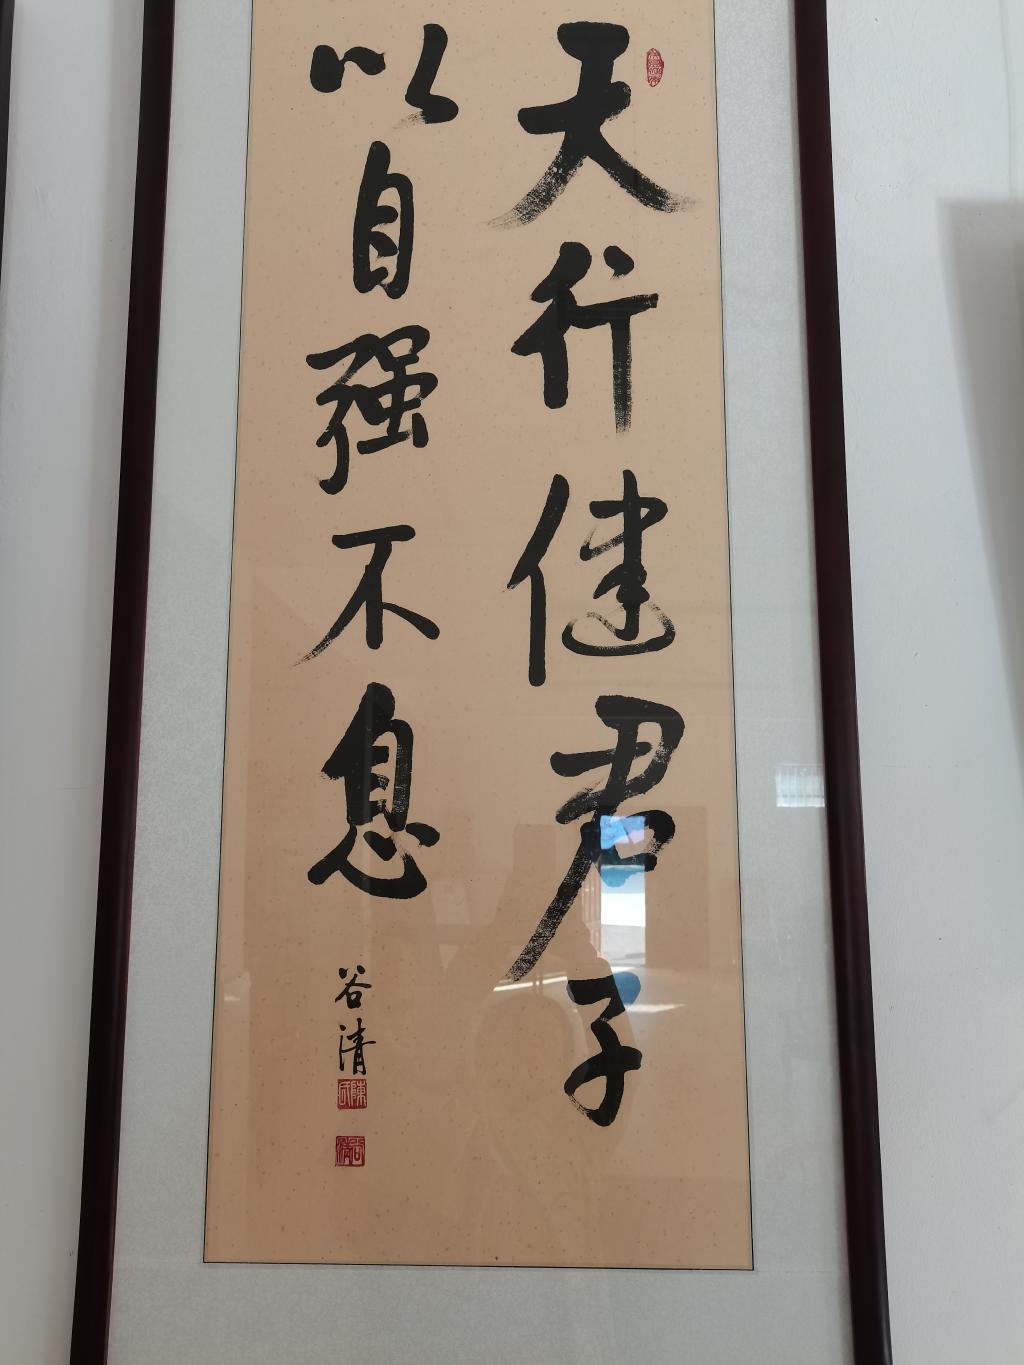 天行健君子
以自强不息
谷清